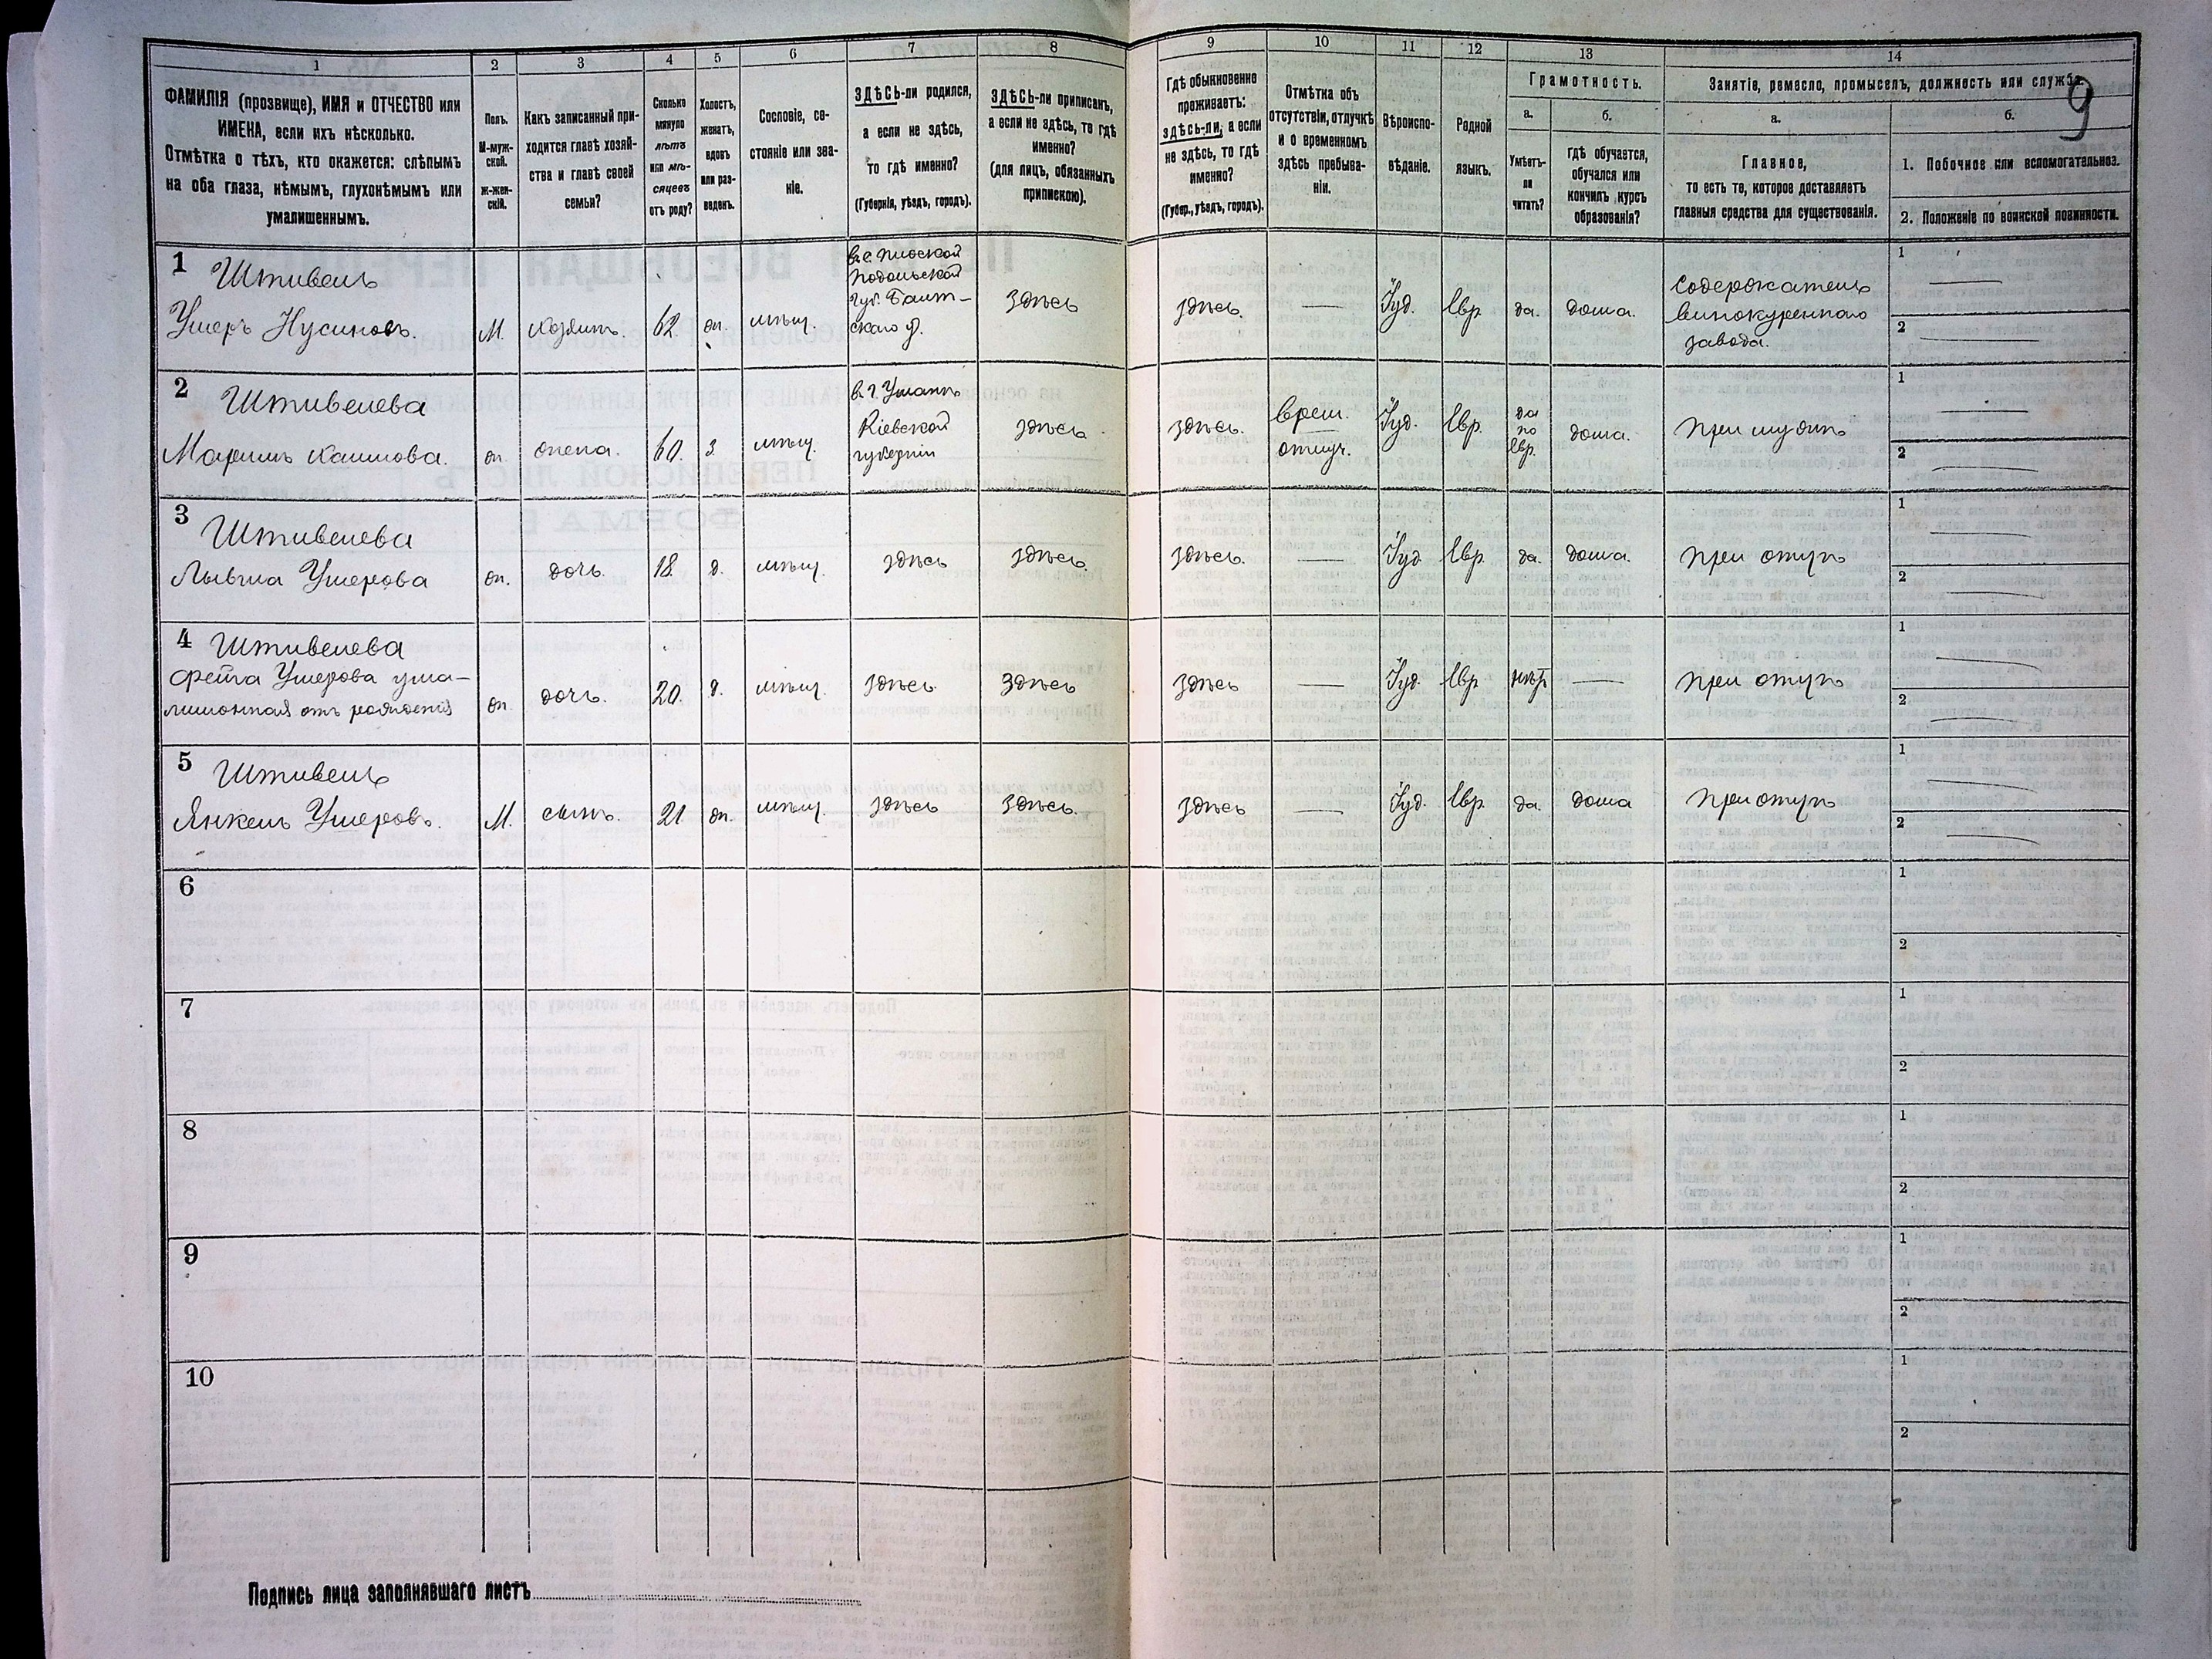 9
1
2
3
4
5
6
7
8
9
10
11
12
13
14
ФАМИЛІЯ (прозвище), ИМЯ и ОТЧЕСТВО или
ИМЕНА, если ихъ нѣсколько.
Отмѣтка о тѣхъ, кто окажется: слѣпымъ
на оба глаза, нѣмымъ, глухонѣмымъ или
умалишеннымъ.
Полъ.
М-муж-
ской.
Ж-жен-
скій.
Какъ записанный при-
ходится главѣ хозяй-
ства и главѣ своей
семьи?
Сколько
минуло
лѣтъ
или мѣ-
сяцевъ
отъ роду?
Холостъ,
женатъ,
вдовъ
или раз-
веденъ.
Сословіе, со-
стояніе или зва-
ніе.
ЗДѢСЬ-ли родился,
а если не здѣсь,
то гдѣ именно?
(Губернія, уѣздъ, городъ).
ЗДѢСЬ-ли приписанъ,
а если не здѣсь, то гдѣ
именно?
(для лицъ, обязанныхъ
припискою).
Гдѣ обыкновенно
проживаетъ:
здѣсь-ли, а если
не здѣсь, то гдѣ
именно?
(Губер., уѣздъ, городъ).
Отмѣтка объ
отсутствіи, отлучкѣ
и о временномъ
здѣсь пребыва-
ніи.
Вѣроиспо-
вѣданіе.
Родной
языкъ.
Грамотность.
а.
б.
Умѣетъ-
ли
читать?
Гдѣ обучается,
обучался или
кончилъ курсъ
образованія?
Занятіе, ремесло, промыселъ, должность или служба.
а.
б.
Главное,
то есть то, которое доставляетъ
главныя средства для существованія.
1. Побочное или вспомогательное.
2. Положеніе по воинской повинности.
1 Штивель
Ушеръ Нусиновъ.
М.
хозяинъ.
62
жп.
мѣщ.
Подольской
губ. Балт-
скаго у.
здѣсь
здѣсь.
—
Іуд.
Евр.
да.
дома.
Содержатель
винокуреннаго
завода.
1 —
2 —
2 Штивелева
жп.
жена.
60.
з.
мѣщ.
в. г. Умань
Кіевской
губерніи
здѣсь
здѣсь.
Врем.
отлуч.
Іуд.
Евр.
да
по
Евр.
дома.
при мужѣ
1 —
2 —
3 Штивелева
Ушерова
жп.
дочь.
18.
д.
мѣщ.
здѣсь
здѣсь
здѣсь.
—
Іуд
Евр.
да.
дома.
при отцѣ
1 —
2 —
4 Штивелева
Фейга Ушерова ума-
лишонная отъ рожденія
жп.
дочь.
20.
д.
мѣщ.
здѣсь
здѣсь
здѣсь
—
Іуд
Евр
нѣт
—
при отцѣ
1 —
2 —
5 Штивель
Янкель Ушеровъ.
М.
сынъ.
21
жп.
мѣщ.
здѣсь
здѣсь.
здѣсь
—
Іуд.
Евр.
да.
дома
при отцѣ
1 —
2 —
6
1
2
7
1
2
8
1
2
9
1
2
10
1
2
Подпись лица заполнявшаго листъ